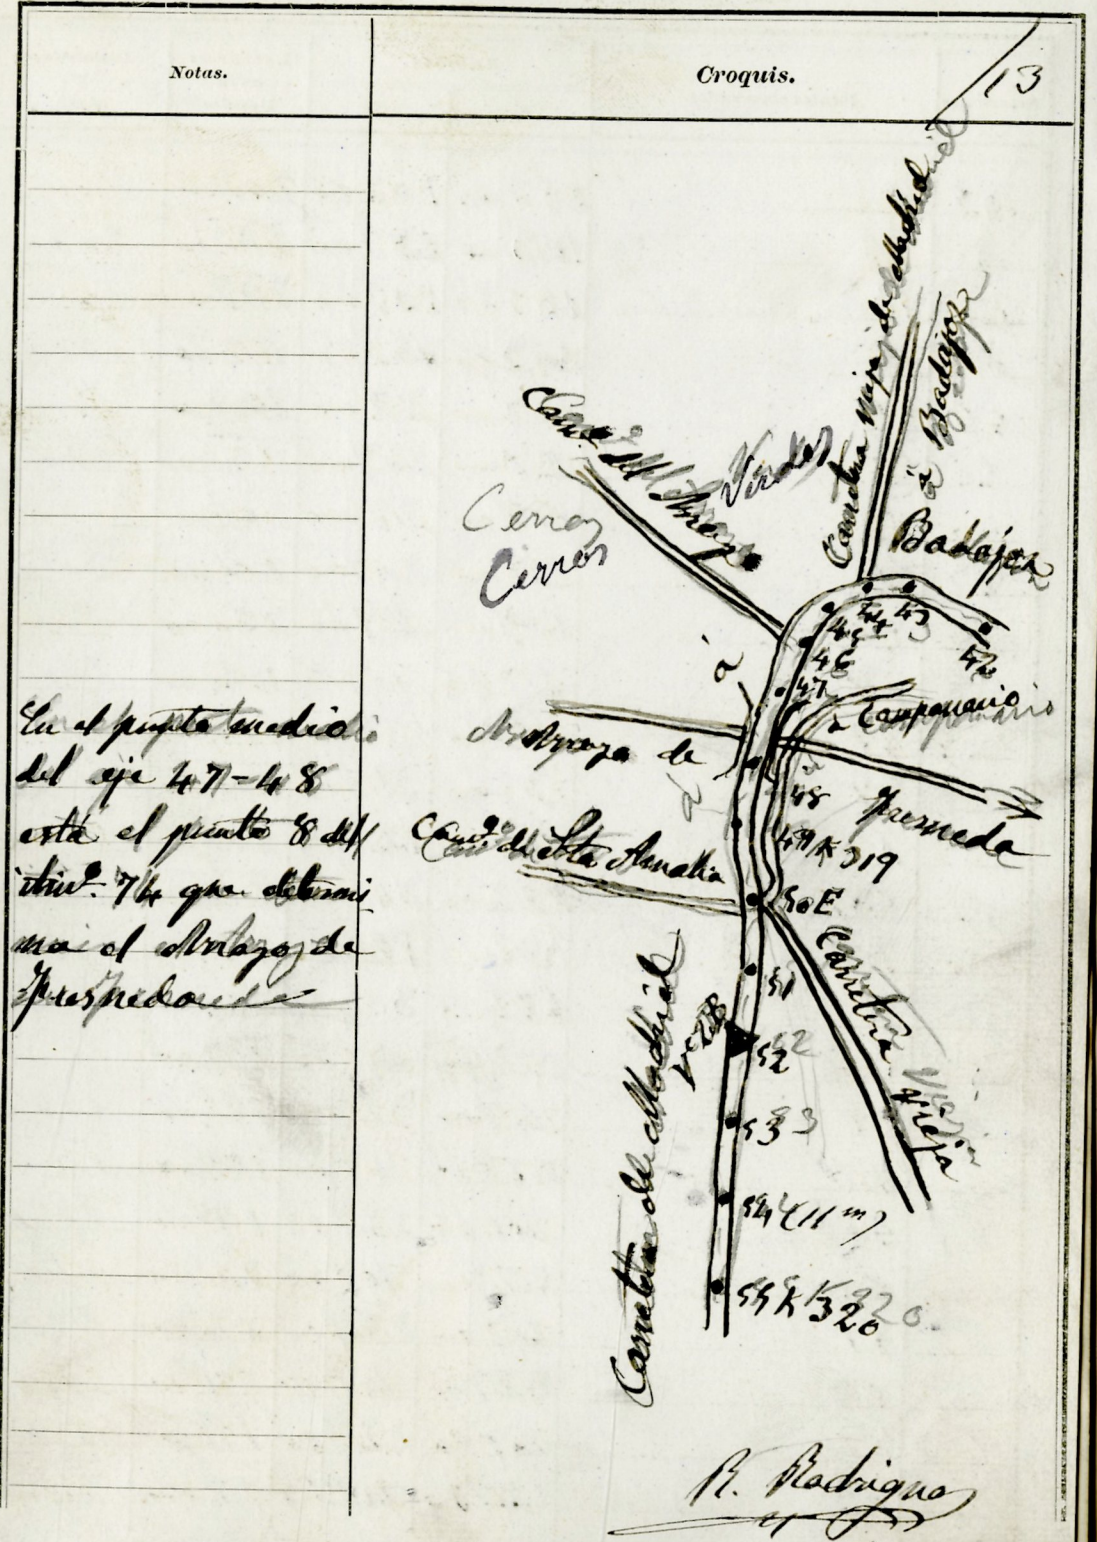 Notas.
Croquis.
13
En el punto medio
del eje 47-48
está el punto 8 del
itin.º 74 que determi
na el Arroyo de
Fresneda
Carretera vieja de Madrid
á Badajoz
Cam.º del Arroyo
Viñas
Cerros
Cerros
Badajoz
á
42
43
44
45
46
47
á Campanario
Arroyo de
48
Fresneda
49 K 319
Cam.º de Sta Amalia
50 E
51
Carretera vieja
Carretera de Madrid
52
53
54 (11 m)
55 K 320
R. Rodriguez